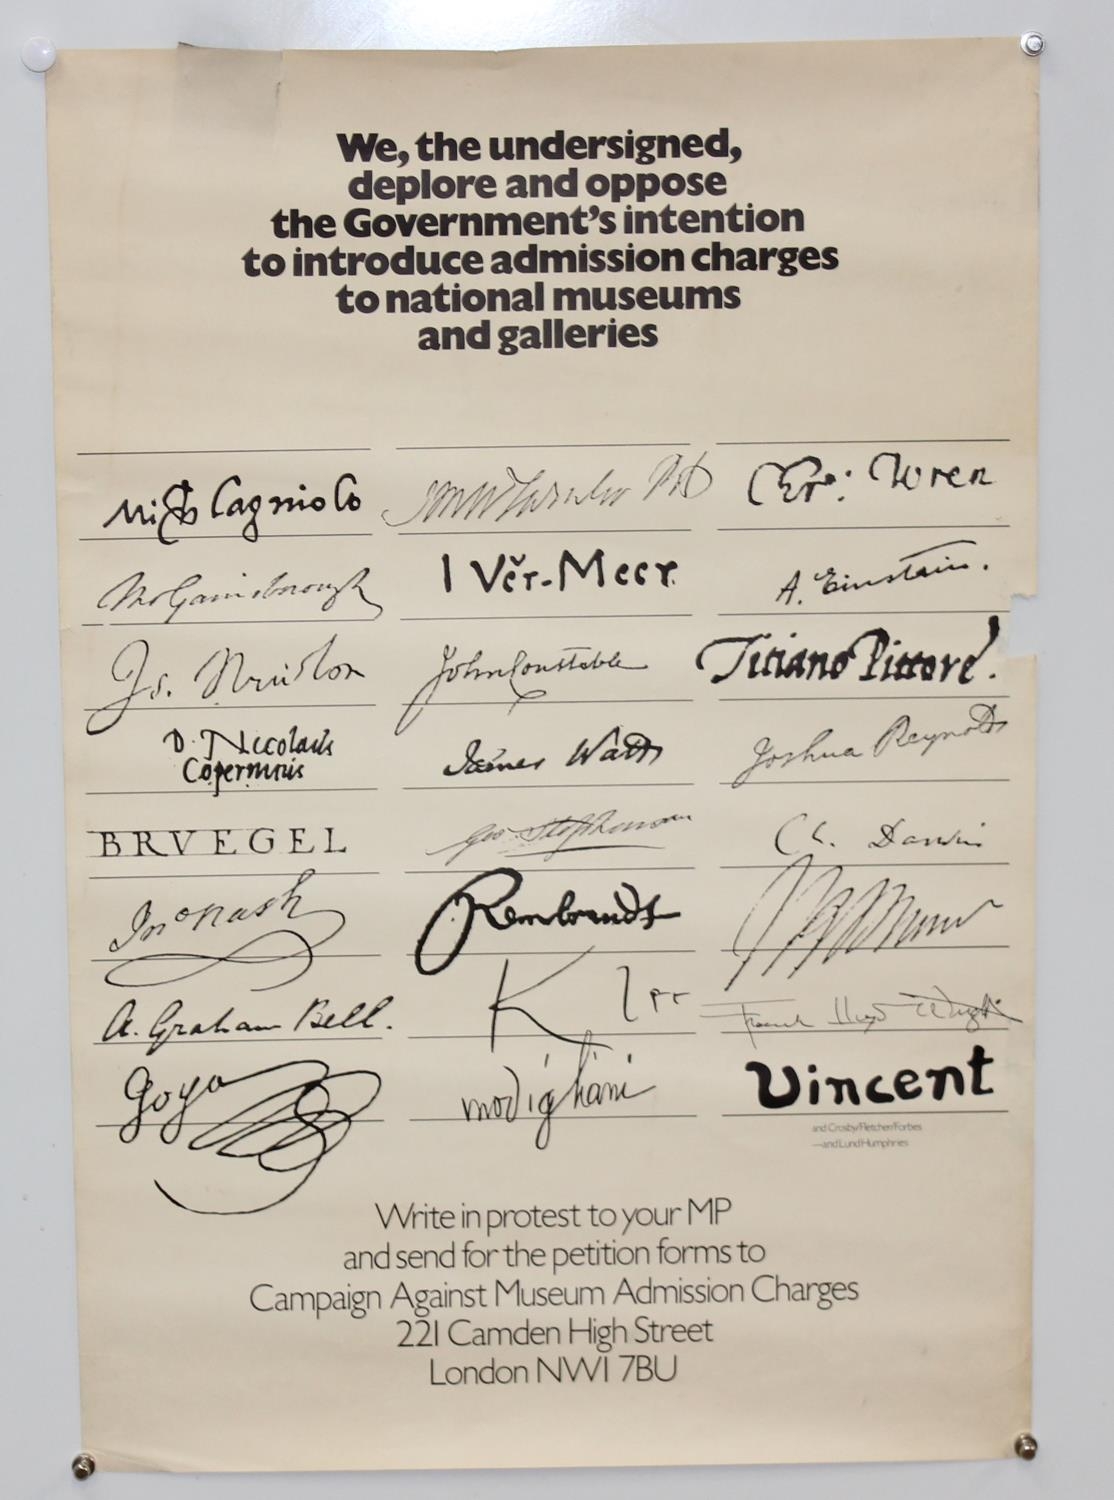 We, the undersigned,
deplore and oppose
the Government's intention
to introduce admission charges
to national museums
and galleries
Chr: Wren
Tho Gainsborough
I Ver-Meer
A. Einstein.
Is. Newton
John Constable
Titiano Pittore.
D. Nicolaus
Copernicus
James Watt
Joshua Reynolds
BRVEGEL
Geo. Stephenson
Ch. Darwin
Jno Nash
Rembrandt
A. Graham Bell.
Frank Lloyd Wright
Goya
modigliani
Vincent
and Crosby/Fletcher/Forbes
—and Lund Humphries
Write in protest to your MP
and send for the petition forms to
Campaign Against Museum Admission Charges
221 Camden High Street
London NW1 7BU